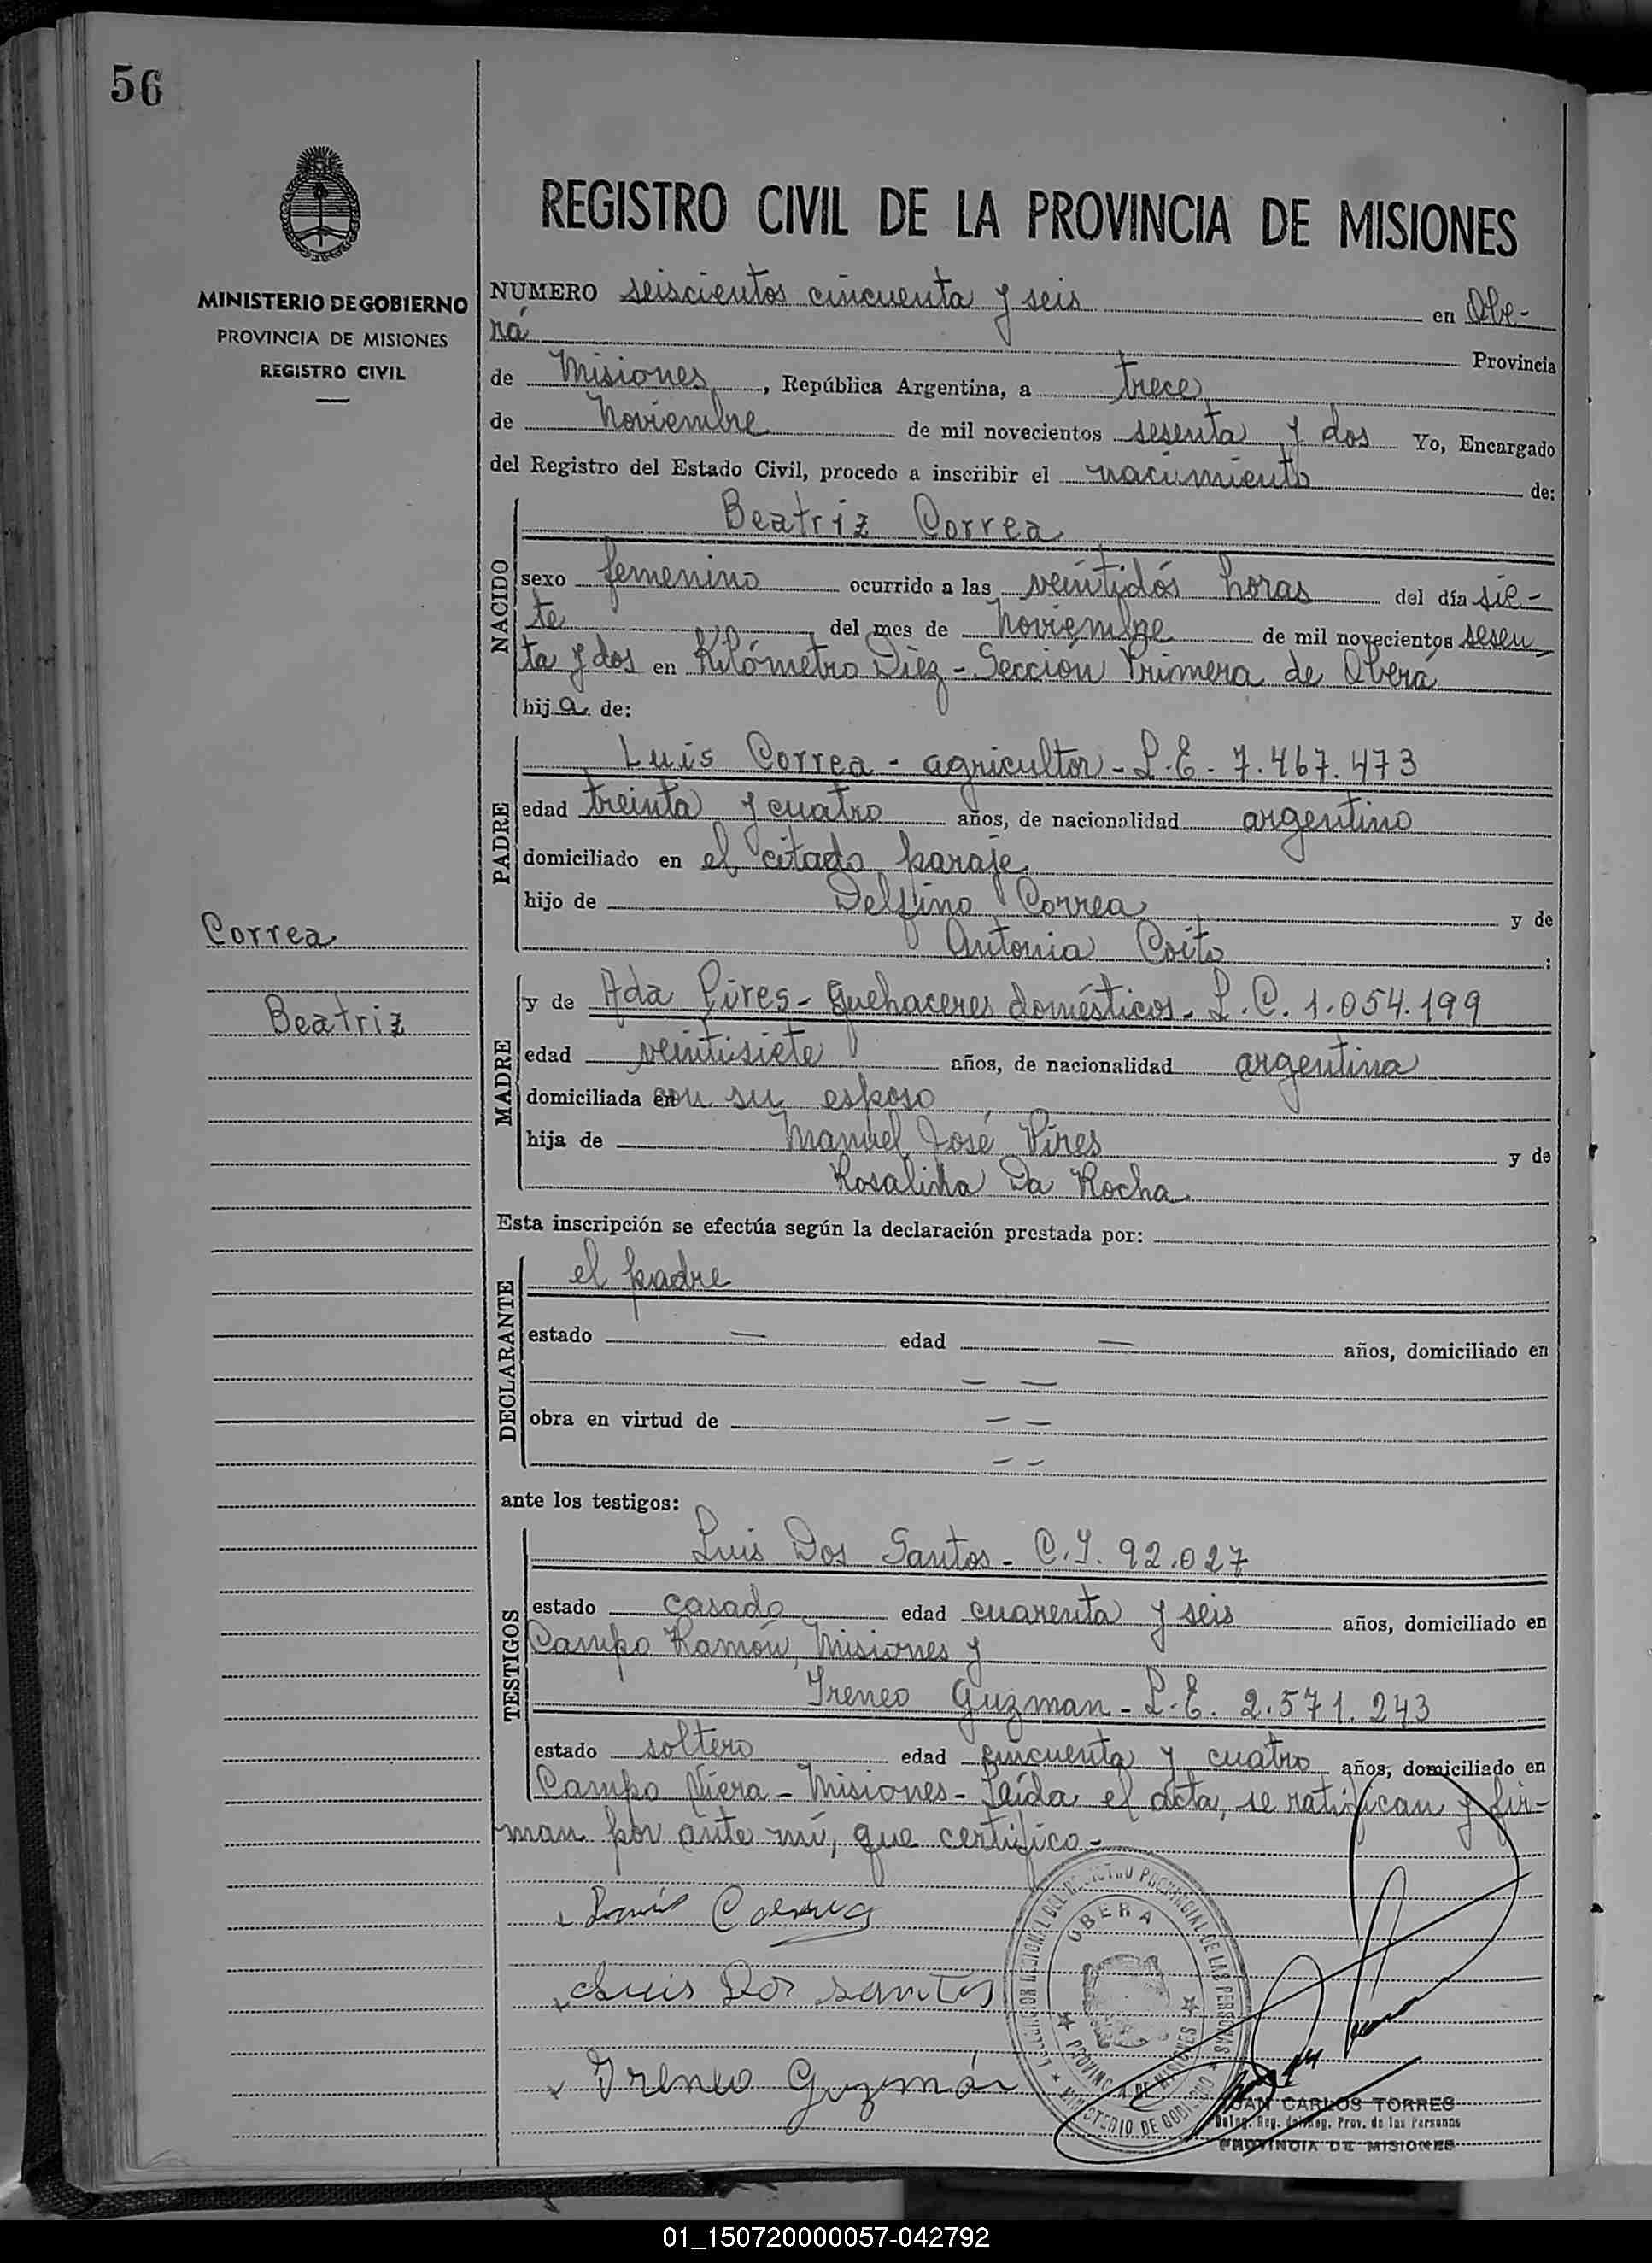 56
MINISTERIO DE GOBIERNO
PROVINCIA DE MISIONES
REGISTRO CIVIL
Correa
Beatriz
REGISTRO CIVIL DE LA PROVINCIA DE MISIONES
NUMERO seiscientos cincuenta y seis en Obe-
rá Provincia
de Misiones, República Argentina, a trece
de Noviembre de mil novecientos sesenta y dos Yo, Encargado
del Registro del Estado Civil, procedo a inscribir el nacimiento de:
NACIDO
Beatriz Correa
sexo femenino ocurrido a las veintidós horas del día sie-
te del mes de Noviembre de mil novecientos sesen
ta y dos en Kilómetro Diez - Sección Primera de Oberá
hija de:
PADRE
Luis Correa - agricultor - L.E. 7.467.473
edad treinta y cuatro años, de nacionalidad argentino
domiciliado en el citado paraje
hijo de Delfino Correa y de
Antonia Coito :
MADRE
y de Ada Pires - Quehaceres domésticos. L.C. 1.054.199
edad veintisiete años, de nacionalidad argentina
domiciliada con su esposo
hija de Manuel José Pires y de
Rosalina Da Rocha
Esta inscripción se efectúa según la declaración prestada por:
DECLARANTE
el padre
estado — edad — años, domiciliado en
— —
obra en virtud de — —
— —
ante los testigos:
TESTIGOS
Luis Dos Santos - C.I. 92.027
estado casado edad cuarenta y seis años, domiciliado en
Campo Ramón, Misiones y
Ireneo Guzman - L.E. 2.571.243
estado soltero edad cincuenta y cuatro años, domiciliado en
Campo Viera - Misiones - Leída el acta, se ratifican y fir-
man por ante mí, que certifico -
Luis Correa
Luis Dos Santos
Ireneo Guzmán
OBERA
PROVINCIA DE MISIONES
MINISTERIO DE GOBIERNO
JUAN CARLOS TORRES
Prov. de las Personas
PROVINCIA DE MISIONES
01_150720000057-042792